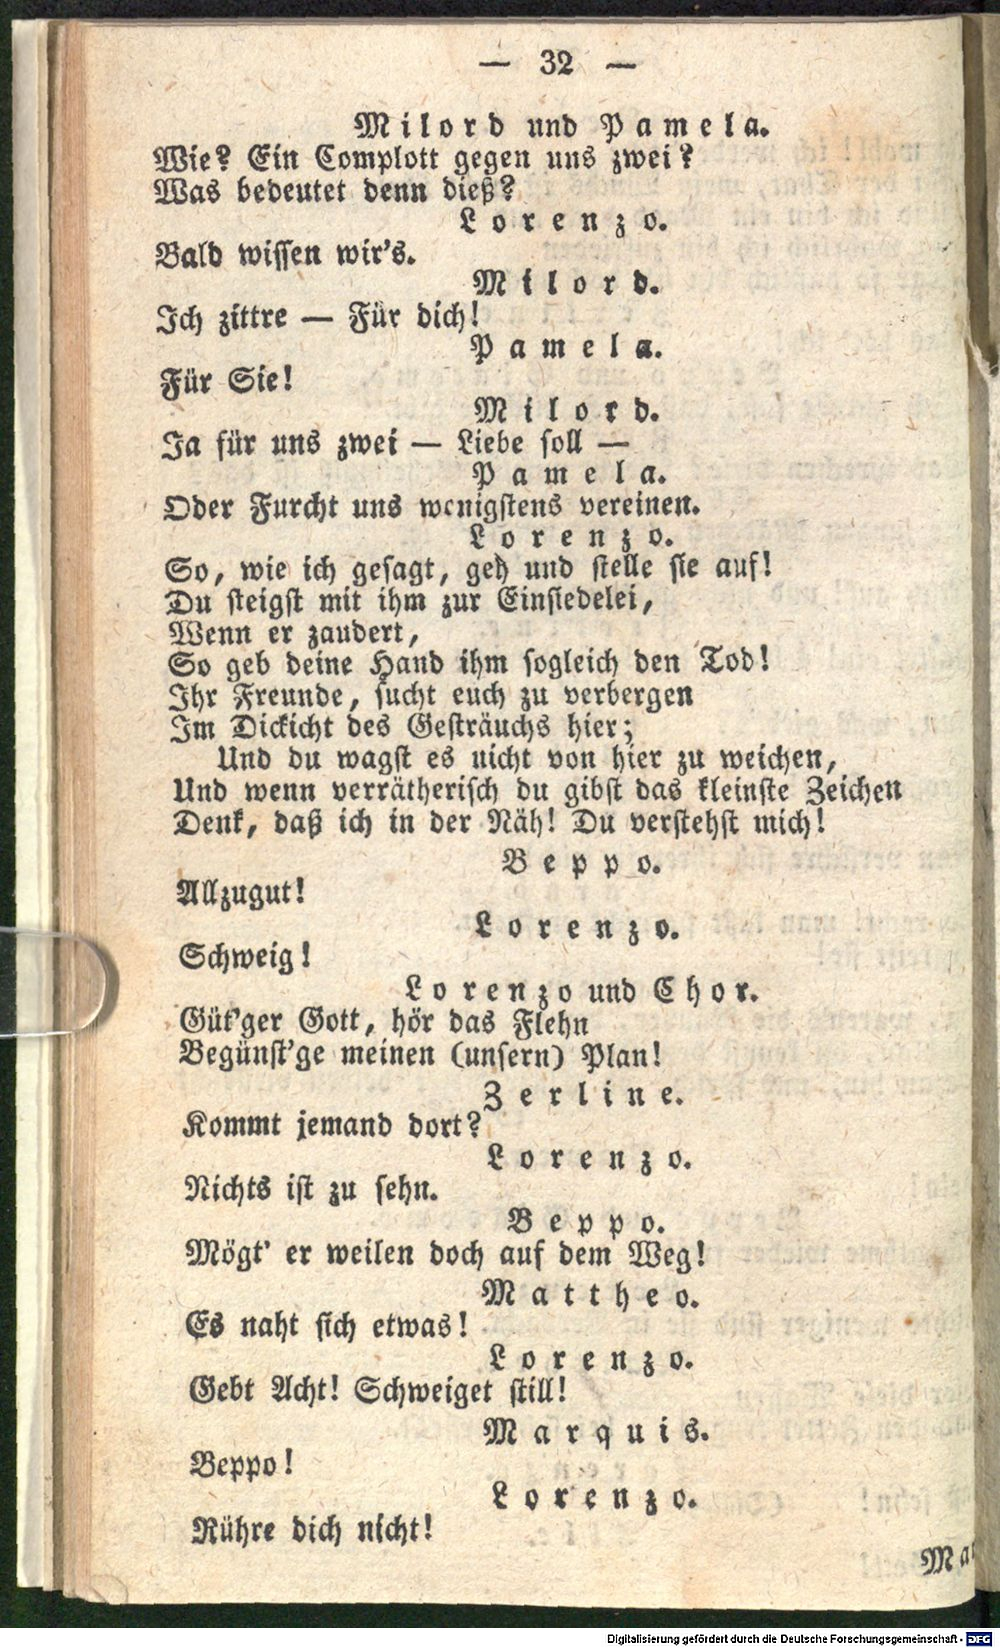 — 32 —
Milord und Pamela.
Wie? Ein Complott gegen uns zwei?
Was bedeutet denn dieß?
Lorenzo.
Bald wissen wir's.
Milord.
Ich zittre — Für dich!
Pamela.
Für Sie!
Milord.
Ja für uns zwei — Liebe soll —
Pamela.
Oder Furcht uns wenigstens vereinen.
Lorenzo.
So, wie ich gesagt, geh und stelle sie auf!
Du steigst mit ihm zur Einsiedelei,
Wenn er zaudert,
So geb deine Hand ihm sogleich den Tod!
Ihr Freunde, sucht euch zu verbergen
Im Dickicht des Gesträuchs hier;
Und du wagst es nicht von hier zu weichen,
Und wenn verrätherisch du gibst das kleinste Zeichen
Denk, daß ich in der Näh! Du verstehst mich!
Beppo.
Allzugut!
Lorenzo.
Schweig!
Lorenzo und Chor.
Güt'ger Gott, hör das Flehn
Begünst'ge meinen (unsern) Plan!
Zerline.
Kommt jemand dort?
Lorenzo.
Nichts ist zu sehn.
Beppo.
Mögt' er weilen doch auf dem Weg!
Mattheo.
Es naht sich etwas!
Lorenzo.
Gebt Acht! Schweiget still!
Marquis.
Beppo!
Lorenzo.
Rühre dich nicht!
Ma
Digitalisierung gefördert durch die Deutsche Forschungsgemeinschaft - DFG